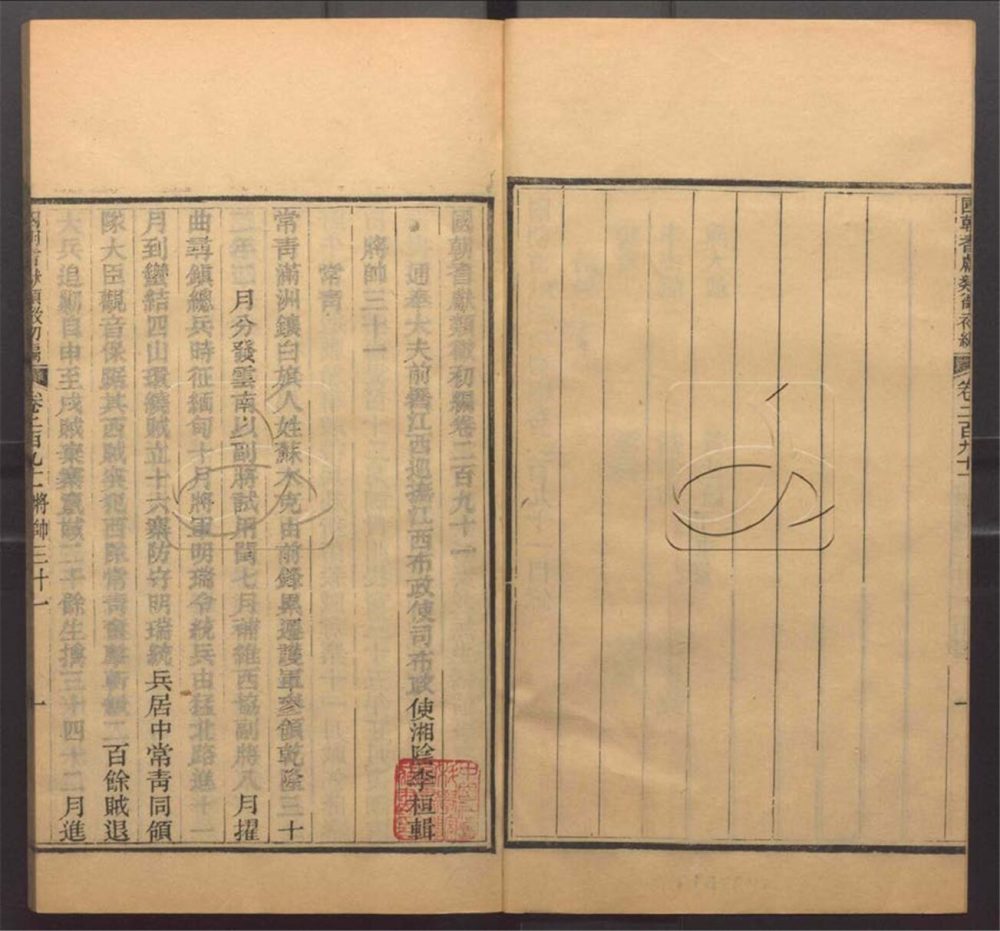 國朝耆獻類徵初編
卷二百九十
一
國朝耆獻類徵初編卷二百九十一
通奉大夫前署江西巡撫江西布政使司布政使湘陰李桓輯
將帥三十一
常青
常青滿洲鑲白旗人姓蘇木克由前鋒累遷護軍參領乾隆三十
二年二月分發雲南以副將試用閏七月補維西協副將八月擢
曲尋鎮總兵時征緬甸十月將軍明瑞令統兵由猛北路進十一
月到蠻結四山環繞賊立十六寨防守明瑞統兵居中常青同領
隊大臣觀音保踞其西賊衆犯西隊常青奮擊斬馘二百餘賊退
大兵追勦自申至戌賊棄寨竄馘二千餘生擒三十四十二月進
國朝耆獻類徵初編
卷二百九十一 將帥三十一
一